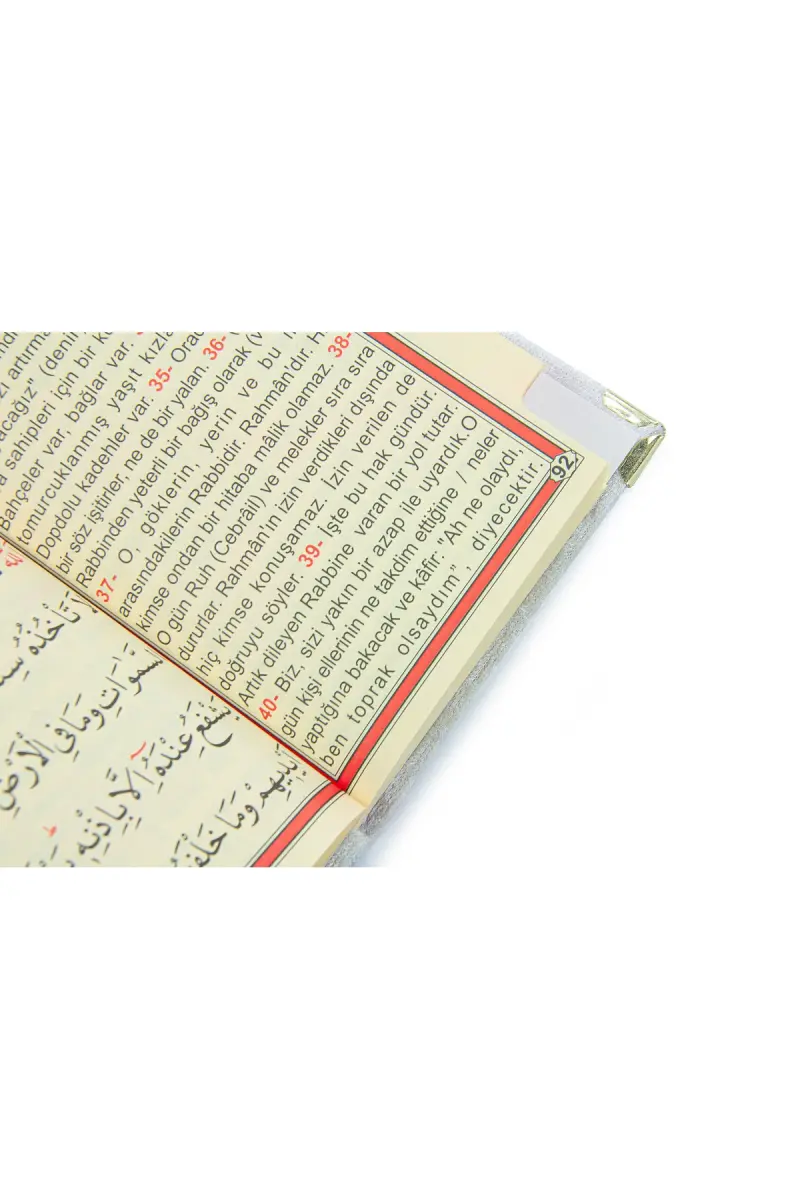 artırma
acağız" (denir
sahipleri için bir
Bahçeler var, bağlar var.
tomurcuklanmış yaşıt kızla
Dopdolu kadehler var. 35- Orad
bir söz işitirler, ne de bir yalan. 36-
Rabbinden yeterli bir bağış olarak (v
37- O, göklerin, yerin ve bu i
arasındakilerin Rabbidir. Rahmân'dır. H
kimse ondan bir hitaba mâlik olamaz. 38-
O gün Ruh (Cebrâil) ve melekler sıra sıra
dururlar. Rahmân'ın izin verdikleri dışında
hiç kimse konuşamaz. İzin verilen de
doğruyu söyler. 39- İşte bu hak gündür,
Artık dileyen Rabbine varan bir yol tutar.
40- Biz, sizi yakın bir azap ile uyardık.O
gün kişi ellerinin ne takdim ettiğine / neler
yaptığına bakacak ve kâfir: "Ah ne olaydı,
ben toprak olsaydım", diyecektir.
92
تَأْخُذُهُ
السَّمٰوَاتِ وَمَا فِي الْاَرْضِ
يَشْفَعُ عِنْدَهُ اِلَّا بِاِذْنِهِ
اَيْدِيهِمْ وَمَا خَلْفَ